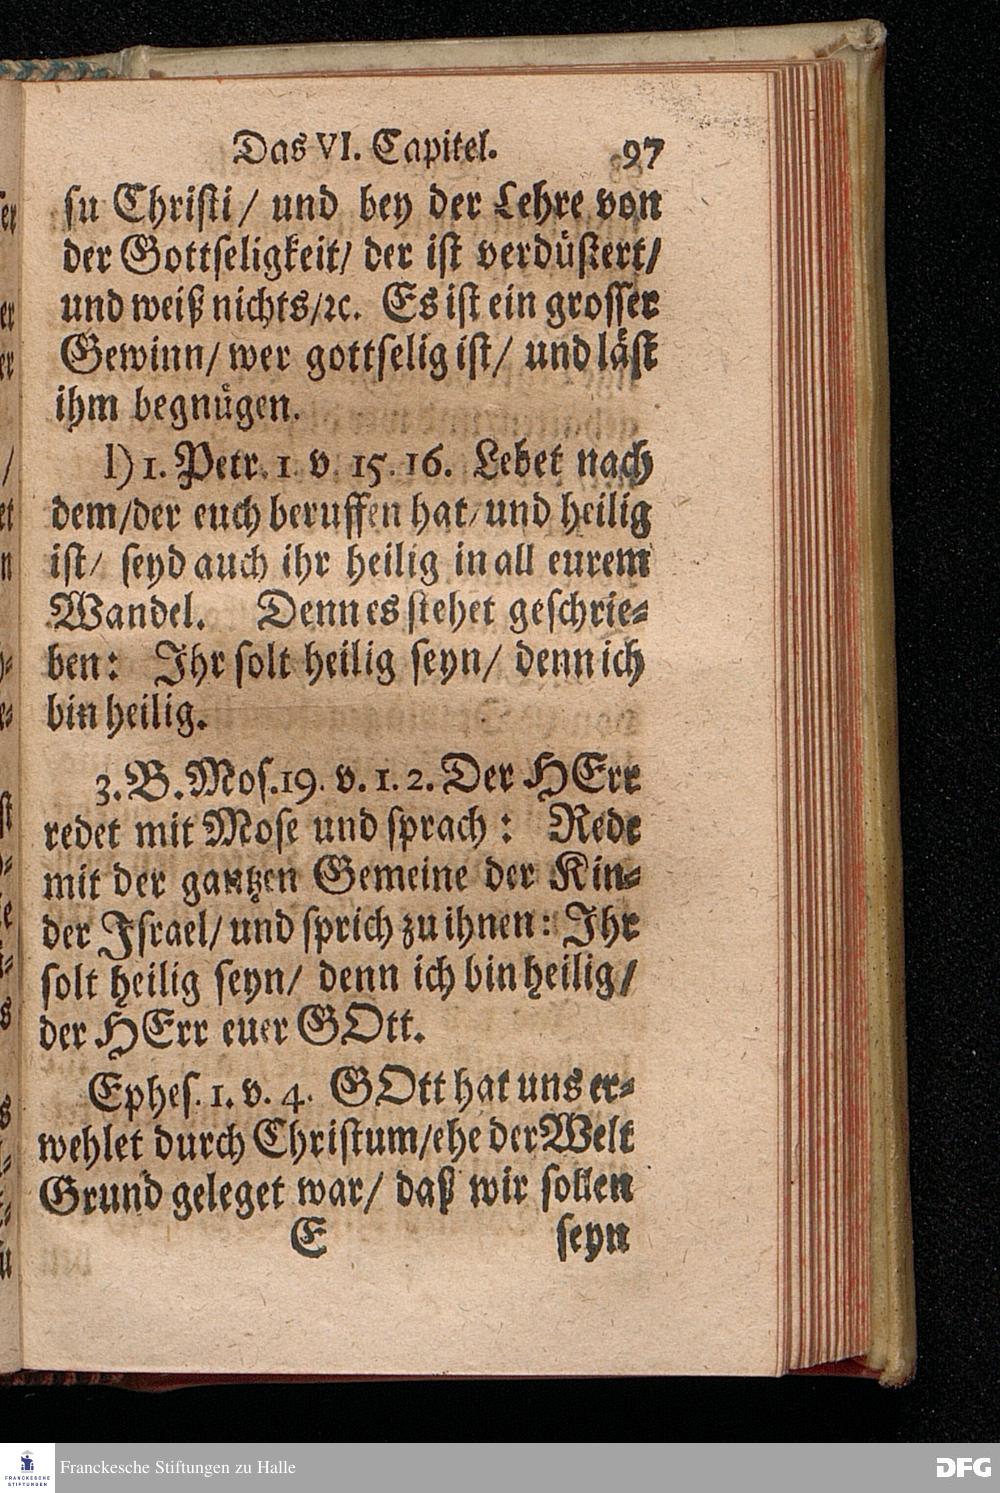 Das VI. Capitel. 97
su Christi/ und bey der Lehre von
der Gottseligkeit/ der ist verdüstert/
und weiß nichts/ꝛc. Es ist ein grosser
Gewinn/ wer gottselig ist/ und läst
ihm begnügen.
l) 1. Petr. 1 v. 15. 16. Lebet nach
dem/der euch beruffen hat/und heilig
ist/ seyd auch ihr heilig in all eurem
Wandel. Denn es stehet geschrie-
ben: Ihr solt heilig seyn/ denn ich
bin heilig.
3. B. Mos. 19. v. 1. 2. Der HErr
redet mit Mose und sprach: Rede
mit der gantzen Gemeine der Kin-
der Israel/ und sprich zu ihnen: Ihr
solt heilig seyn/ denn ich bin heilig/
der HErr euer GOtt.
Ephes. 1. v. 4. GOtt hat uns er-
wehlet durch Christum/ehe der Welt
Grund geleget war/ daß wir sollen
E seyn
FRANCKESCHE
STIFTUNGEN
Franckesche Stiftungen zu Halle
DFG